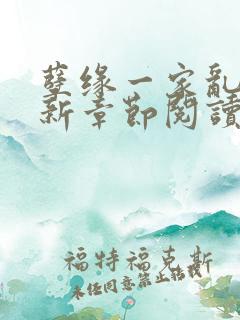 孽缘一家亂
新章节阅讀
福特福克斯
未经同意禁止转载